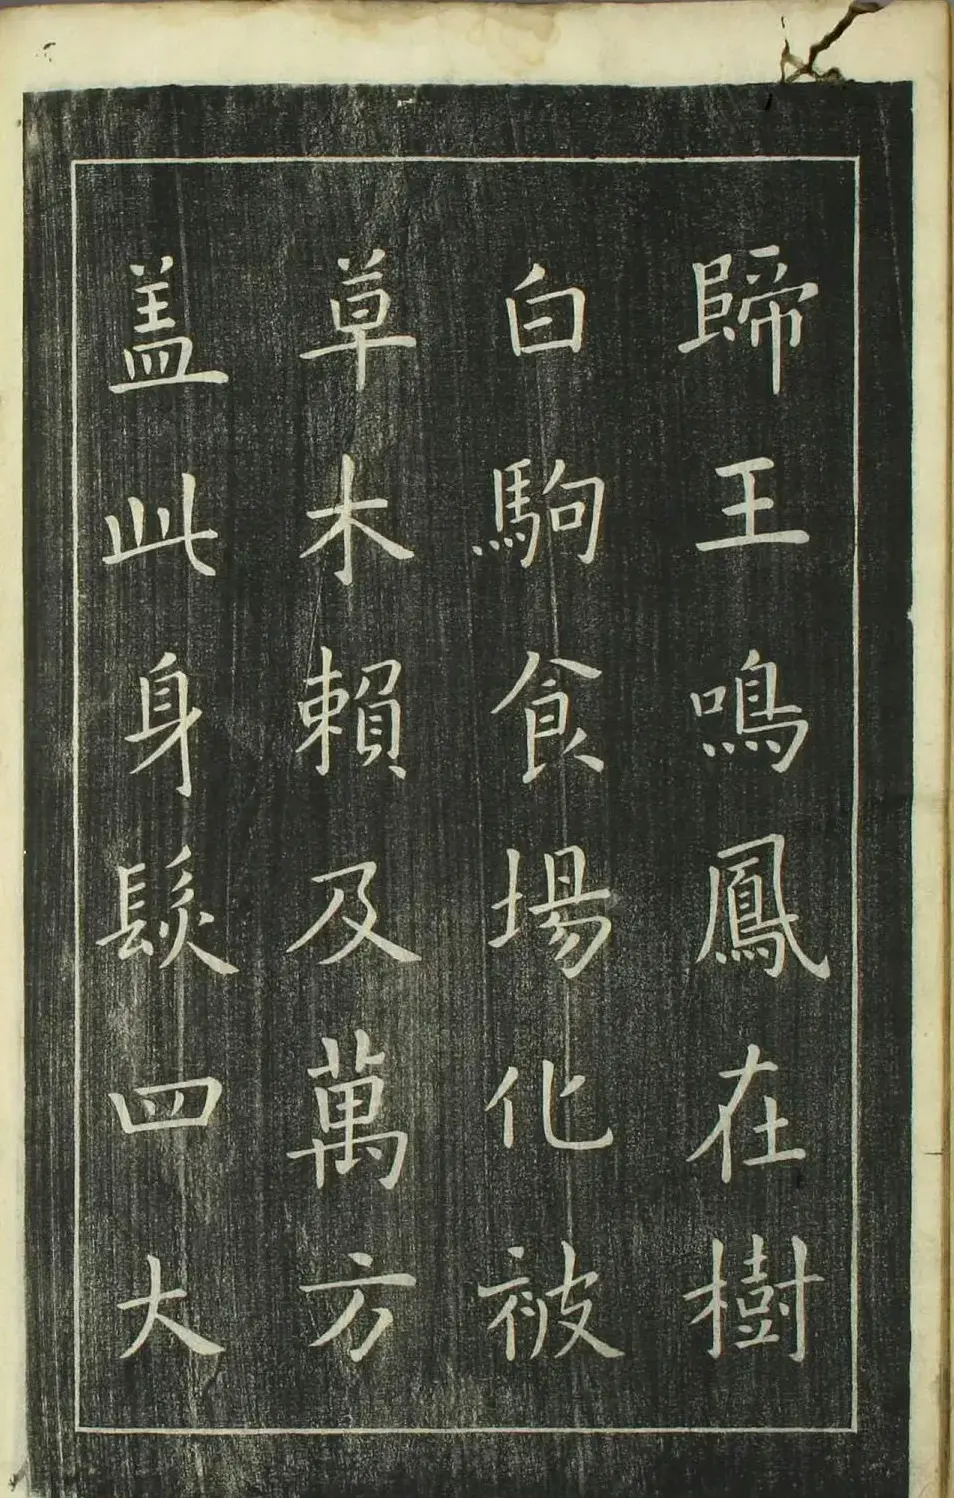 歸王鳴鳳在樹
白駒食場化被
草木賴及萬方
盖此身髮四大